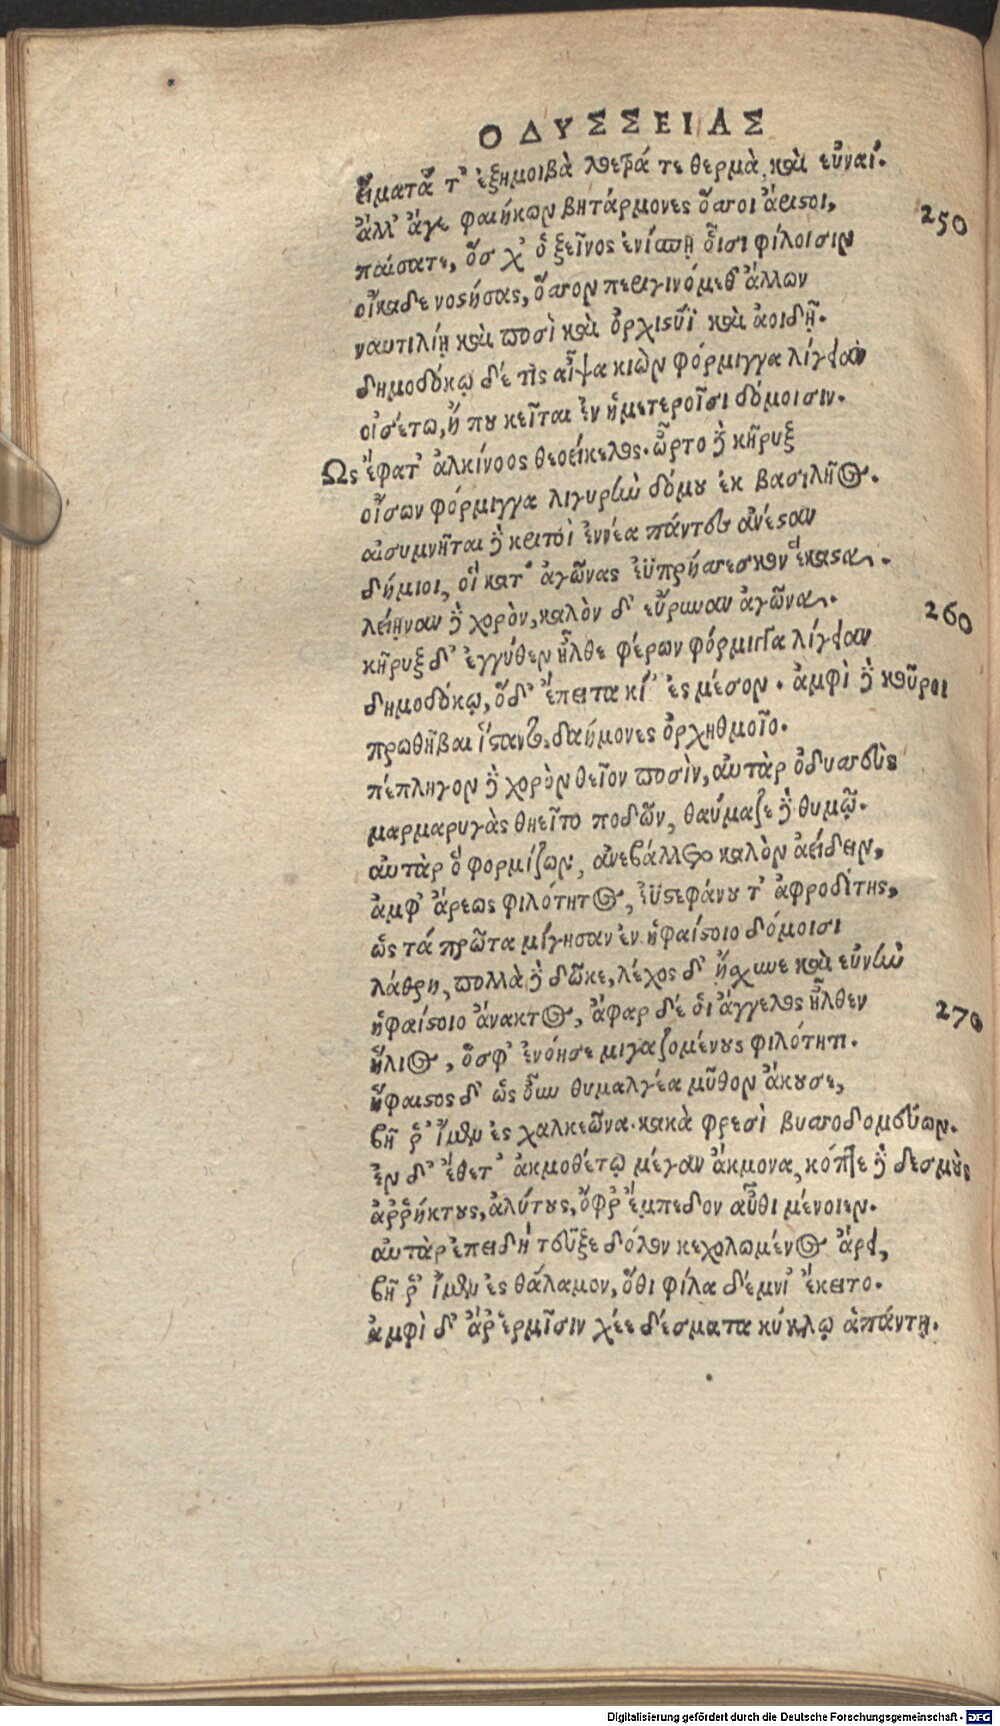 ΟΔΥΣΣΕΙΑΣ
εἵματά τ' ἐξημοιβὰ λοετρά τε θερμὰ καὶ εὐναί.
ἀλλ' ἄγε φαιήκων βητάρμονες ὅσσοι ἄριστοι,
250
παίσατε, ὥς χ' ὁ ξεῖνος ἐνίσπῃ οἷσι φίλοισιν
οἴκαδε νοστήσας, ὅσσον περιγινόμεθ' ἄλλων
ναυτιλίῃ καὶ ποσὶ καὶ ὀρχιστύϊ καὶ ἀοιδῇ.
δημοδόκῳ δέ τις αἶψα κιὼν φόρμιγγα λίγειαν
οἰσέτω, ἥ που κεῖται ἐν ἡμετεροῖσι δόμοισιν.
Ως ἔφατ' ἀλκίνοος θεοείκελος. ὦρτο δὲ κῆρυξ
οἴσων φόρμιγγα λιγυρὴν δόμου ἐκ βασιλῆος.
αἰσυμνῆται δὲ κριτοὶ ἐννέα πάντες ἀνέσταν
δήμιοι, οἳ κατ' ἀγῶνας ἐϋπρήσσεσκον ἕκαστα.
λείηναν δὲ χορὸν, καλὸν δ' εὔρυναν ἀγῶνα.
260
κῆρυξ δ' ἐγγύθεν ἦλθε φέρων φόρμιγγα λίγειαν
δημοδόκῳ, ὅδ' ἔπειτα κί' ἐς μέσον. ἀμφὶ δὲ κοῦροι
πρωθῆβαι ἵσταντο, δαήμονες ὀρχηθμοῖο.
πέπληγον δὲ χορὸν θεῖον ποσὶν, αὐτὰρ ὀδυσσεὺς
μαρμαρυγὰς θηεῖτο ποδῶν, θαύμαζε δὲ θυμῷ.
αὐτὰρ ὁ φορμίζων, ἀνεβάλλετο καλὸν ἀείδειν,
ἀμφ' ἄρεως φιλότητος, ἐϋστεφάνου τ' ἀφροδίτης,
ὡς τά πρῶτα μίγησαν ἐν ἡφαίστοιο δόμοισι
λάθρη, πολλὰ δὲ δῶκε, λέχος δ' ᾔσχυνε καὶ εὐνὴν
ἡφαίστοιο ἄνακτος, ἄφαρ δέ οἱ ἄγγελος ἦλθεν
270
ἥλιος, ὅσφ' ἐνόησε μιγαζομένους φιλότητι.
ἥφαιστος δ' ὡς οὖν θυμαλγέα μῦθον ἄκουσε,
βῆ ῥ' ἴμεν ἐς χαλκεῶνα. κακὰ φρεσὶ βυσσοδομεύων.
ἐν δ' ἔθετ' ἀκμοθέτῳ μέγαν ἄκμονα, κόπτε δὲ δεσμοὺς
ἀῤῥήκτους, ἀλύτους, ὄφρ' ἔμπεδον αὖθι μένοιεν.
αὐτὰρ ἐπειδὴ τεῦξε δόλον κεχολωμένος ἄρει,
βῆ ῥ' ἴμεν ἐς θάλαμον, ὅθι φίλα δέμνι' ἔκειτο.
ἀμφὶ δ' ἄρ' ἑρμῖσιν χέε δέσματα κύκλῳ ἁπάντῃ.
Digitalisierung gefördert durch die Deutsche Forschungsgemeinschaft - DFG